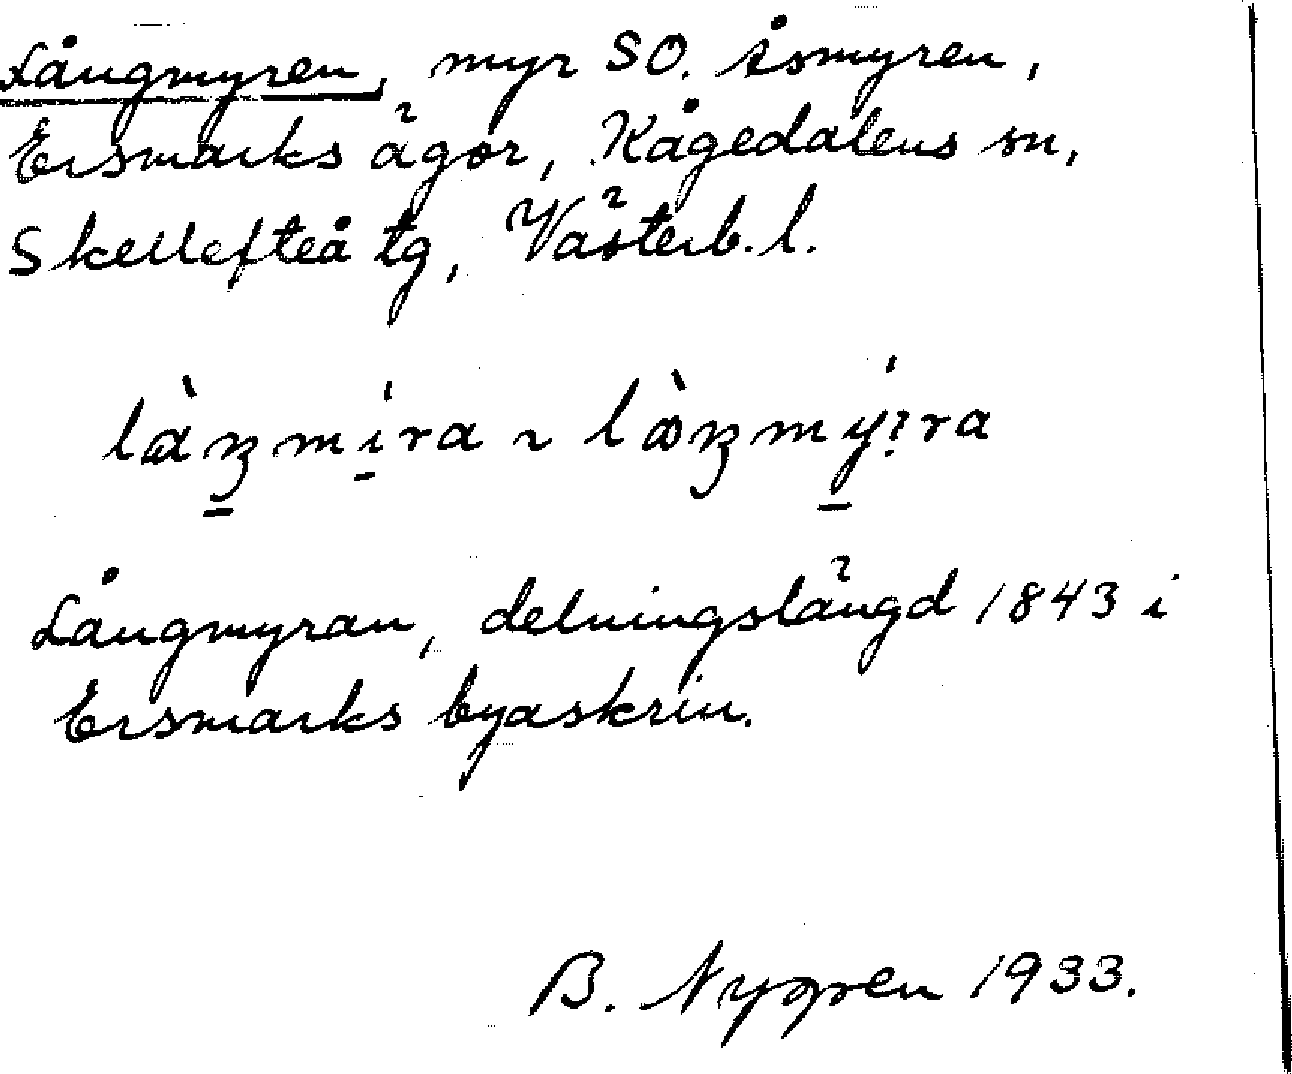 Långmyren, myr SO. Åsmyren,
Ersmarks ägor, Kågedalens sn,
Skellefteå tg, Västerb. l.
Långmyran, delningslängd 1843 i
Ersmarks byaskrin.
B. Nygren 1933.